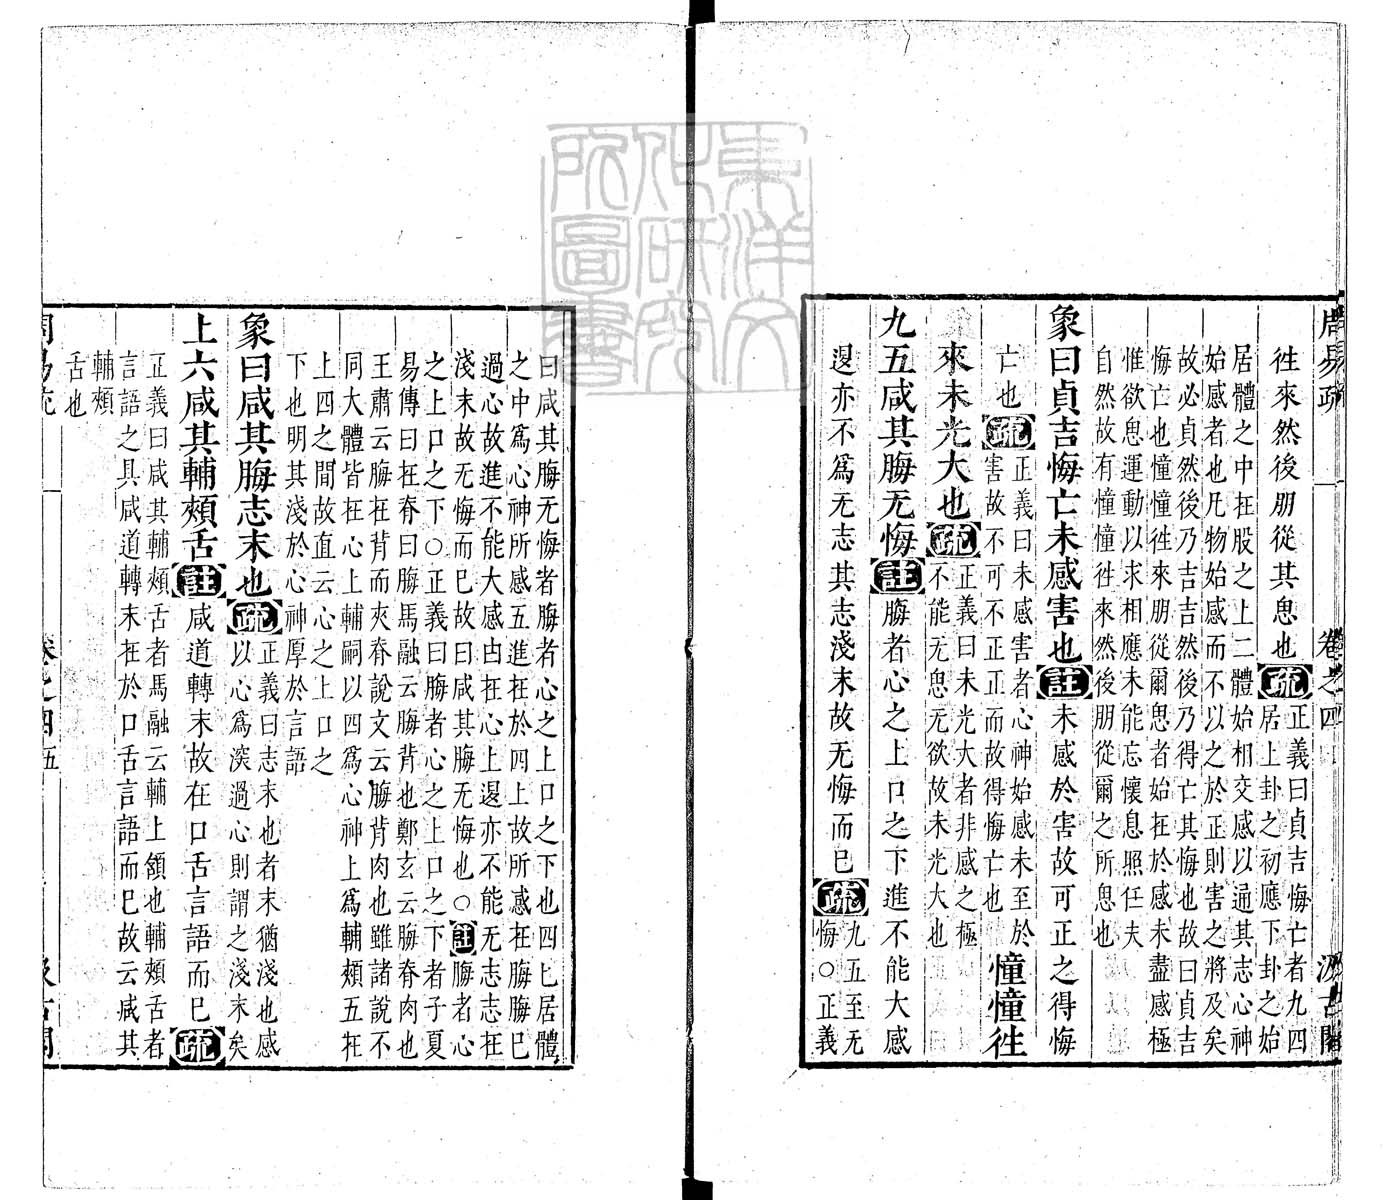 周易疏
卷之四
汲古閣
徃來然後朋從其思也疏
正義曰貞吉悔亡者九四
居上卦之初應下卦之始
居體之中在股之上二體始相交感以通其志心神
始感者也凡物始感而不以之於正則害之將及矣
故必貞然後乃吉吉然後乃得亡其悔也故曰貞吉
悔亡也憧憧徃來朋從爾思者始在於感未盡感極
惟欲思運動以求相應未能忘懷息照任夫
自然故有憧憧徃來然後朋從爾之所思也
象曰貞吉悔亡未感害也註未感於害故可正之得悔
亡也疏
正義曰未感害者心神始感未至於
害故不可不正正而故得悔亡也
憧憧徃
來未光大也疏
正義曰未光大者非感之極
不能无思无欲故未光大也
九五咸其脢无悔註脢者心之上口之下進不能大感
退亦不爲无志其志淺末故无悔而已疏
九五至无
悔○正義
曰咸其脢无悔者脢者心之上口之下也四已居體
之中爲心神所感五進在於四上故所感在脢脢已
過心故進不能大感由在心上退亦不能无志志在
淺末故无悔而已故曰咸其脢无悔也○註脢者心
之上口之下○正義曰脢者心之上口之下者子夏
易傳曰在脊曰脢馬融云脢背也鄭玄云脢脊肉也
王肅云脢在背而夾脊說文云脢背肉也雖諸說不
同大體皆在心上輔嗣以四爲心神上爲輔頰五在
上四之間故直云心之上口之
下也明其淺於心神厚於言語
象曰咸其脢志末也疏
正義曰志末也者末猶淺也感
以心爲深過心則謂之淺末矣
上六咸其輔頰舌註咸道轉末故在口舌言語而已疏
正義曰咸其輔頰舌者馬融云輔上頷也輔頰舌者
言語之具咸道轉末在於口舌言語而已故云咸其
輔頰
舌也
周易疏
卷之四
五
汲古閣
東洋文
化研究
所圖書